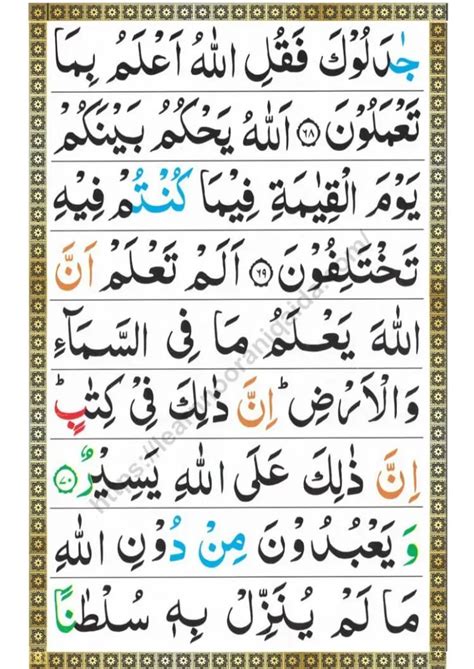 جٰدَلُوْكَ فَقُلِ اللّٰهُ اَعْلَمُ بِمَا
تَعْمَلُوْنَ ۝٦٨ اَللّٰهُ يَحْكُمُ بَيْنَكُمْ
يَوْمَ الْقِيٰمَةِ فِيْمَا كُنْتُمْ فِيْهِ
تَخْتَلِفُوْنَ ۝٦٩ اَلَمْ تَعْلَمْ اَنَّ
اللّٰهَ يَعْلَمُ مَا فِى السَّمَآءِ
وَالْاَرْضِ ؕ اِنَّ ذٰلِكَ فِيْ كِتٰبٍ ؕ
اِنَّ ذٰلِكَ عَلَى اللّٰهِ يَسِيْرٌ ۝٧٠
وَيَعْبُدُوْنَ مِنْ دُوْنِ اللّٰهِ
مَا لَمْ يُنَزِّلْ بِهٖ سُلْطٰنًا
https://learnnooraniqaida.com/